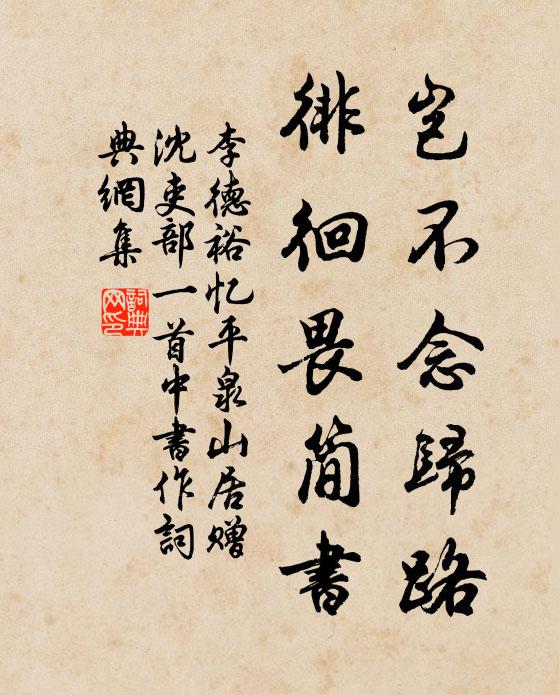 豈不念歸路
徘徊畏簡書
李德裕忆平泉山居赠
沈吏部一首中書作詞
典網集
詞典网印